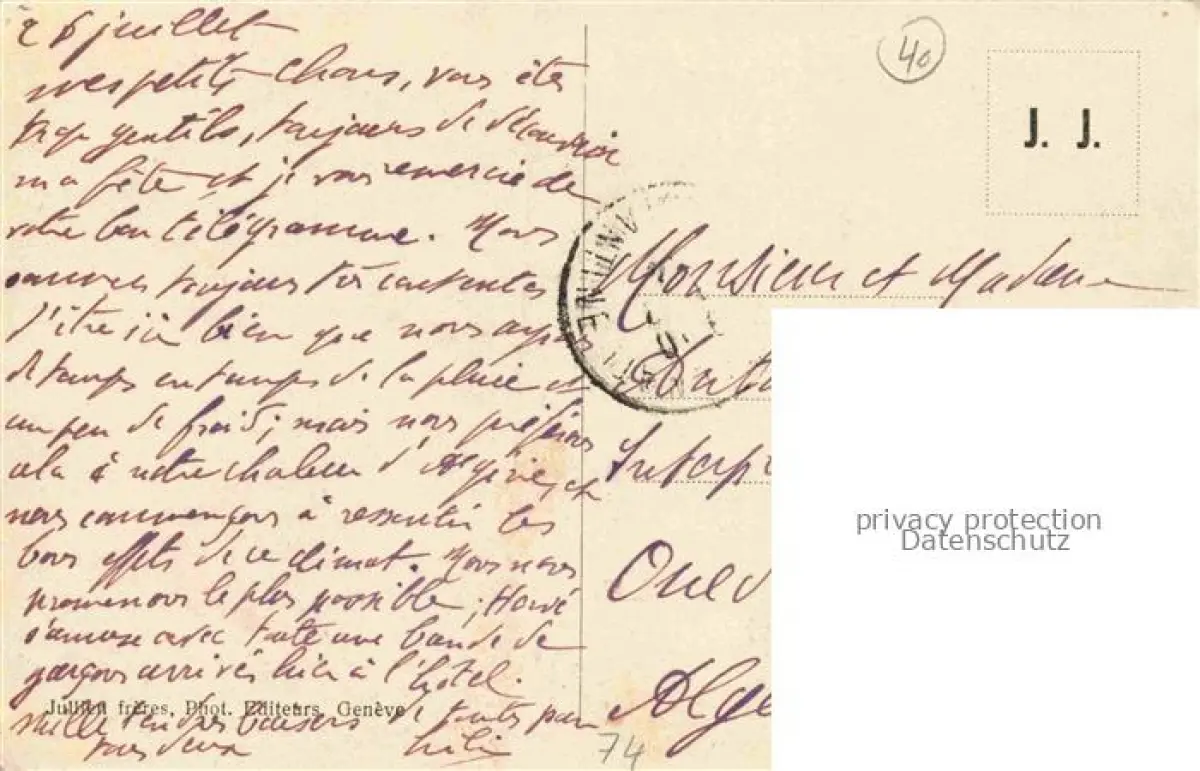 26 juillet
mes petits choux, vous êtes
trop gentils, toujours de
ma fête et je vous remercie de
votre bon télégramme. Nous
sommes toujours très contentes
d'être ici bien que nous ayons
de temps en temps de la pluie et
un peu de froid; mais nous préférons
cela à notre chaleur d'Algérie, et
nous commençons à ressentir les
bons effets de ce climat. Nous nous
promenons le plus possible; Hervé
s'amuse avec toute une bande de
garçons arrivés hier à l'hôtel.
Mille tendres baisers de toutes pour
vous deux
Jullien frères, Phot. Editeurs, Genève
40
J. J.
Monsieur et Madame
Oued
Alge
74
privacy protection
Datenschutz